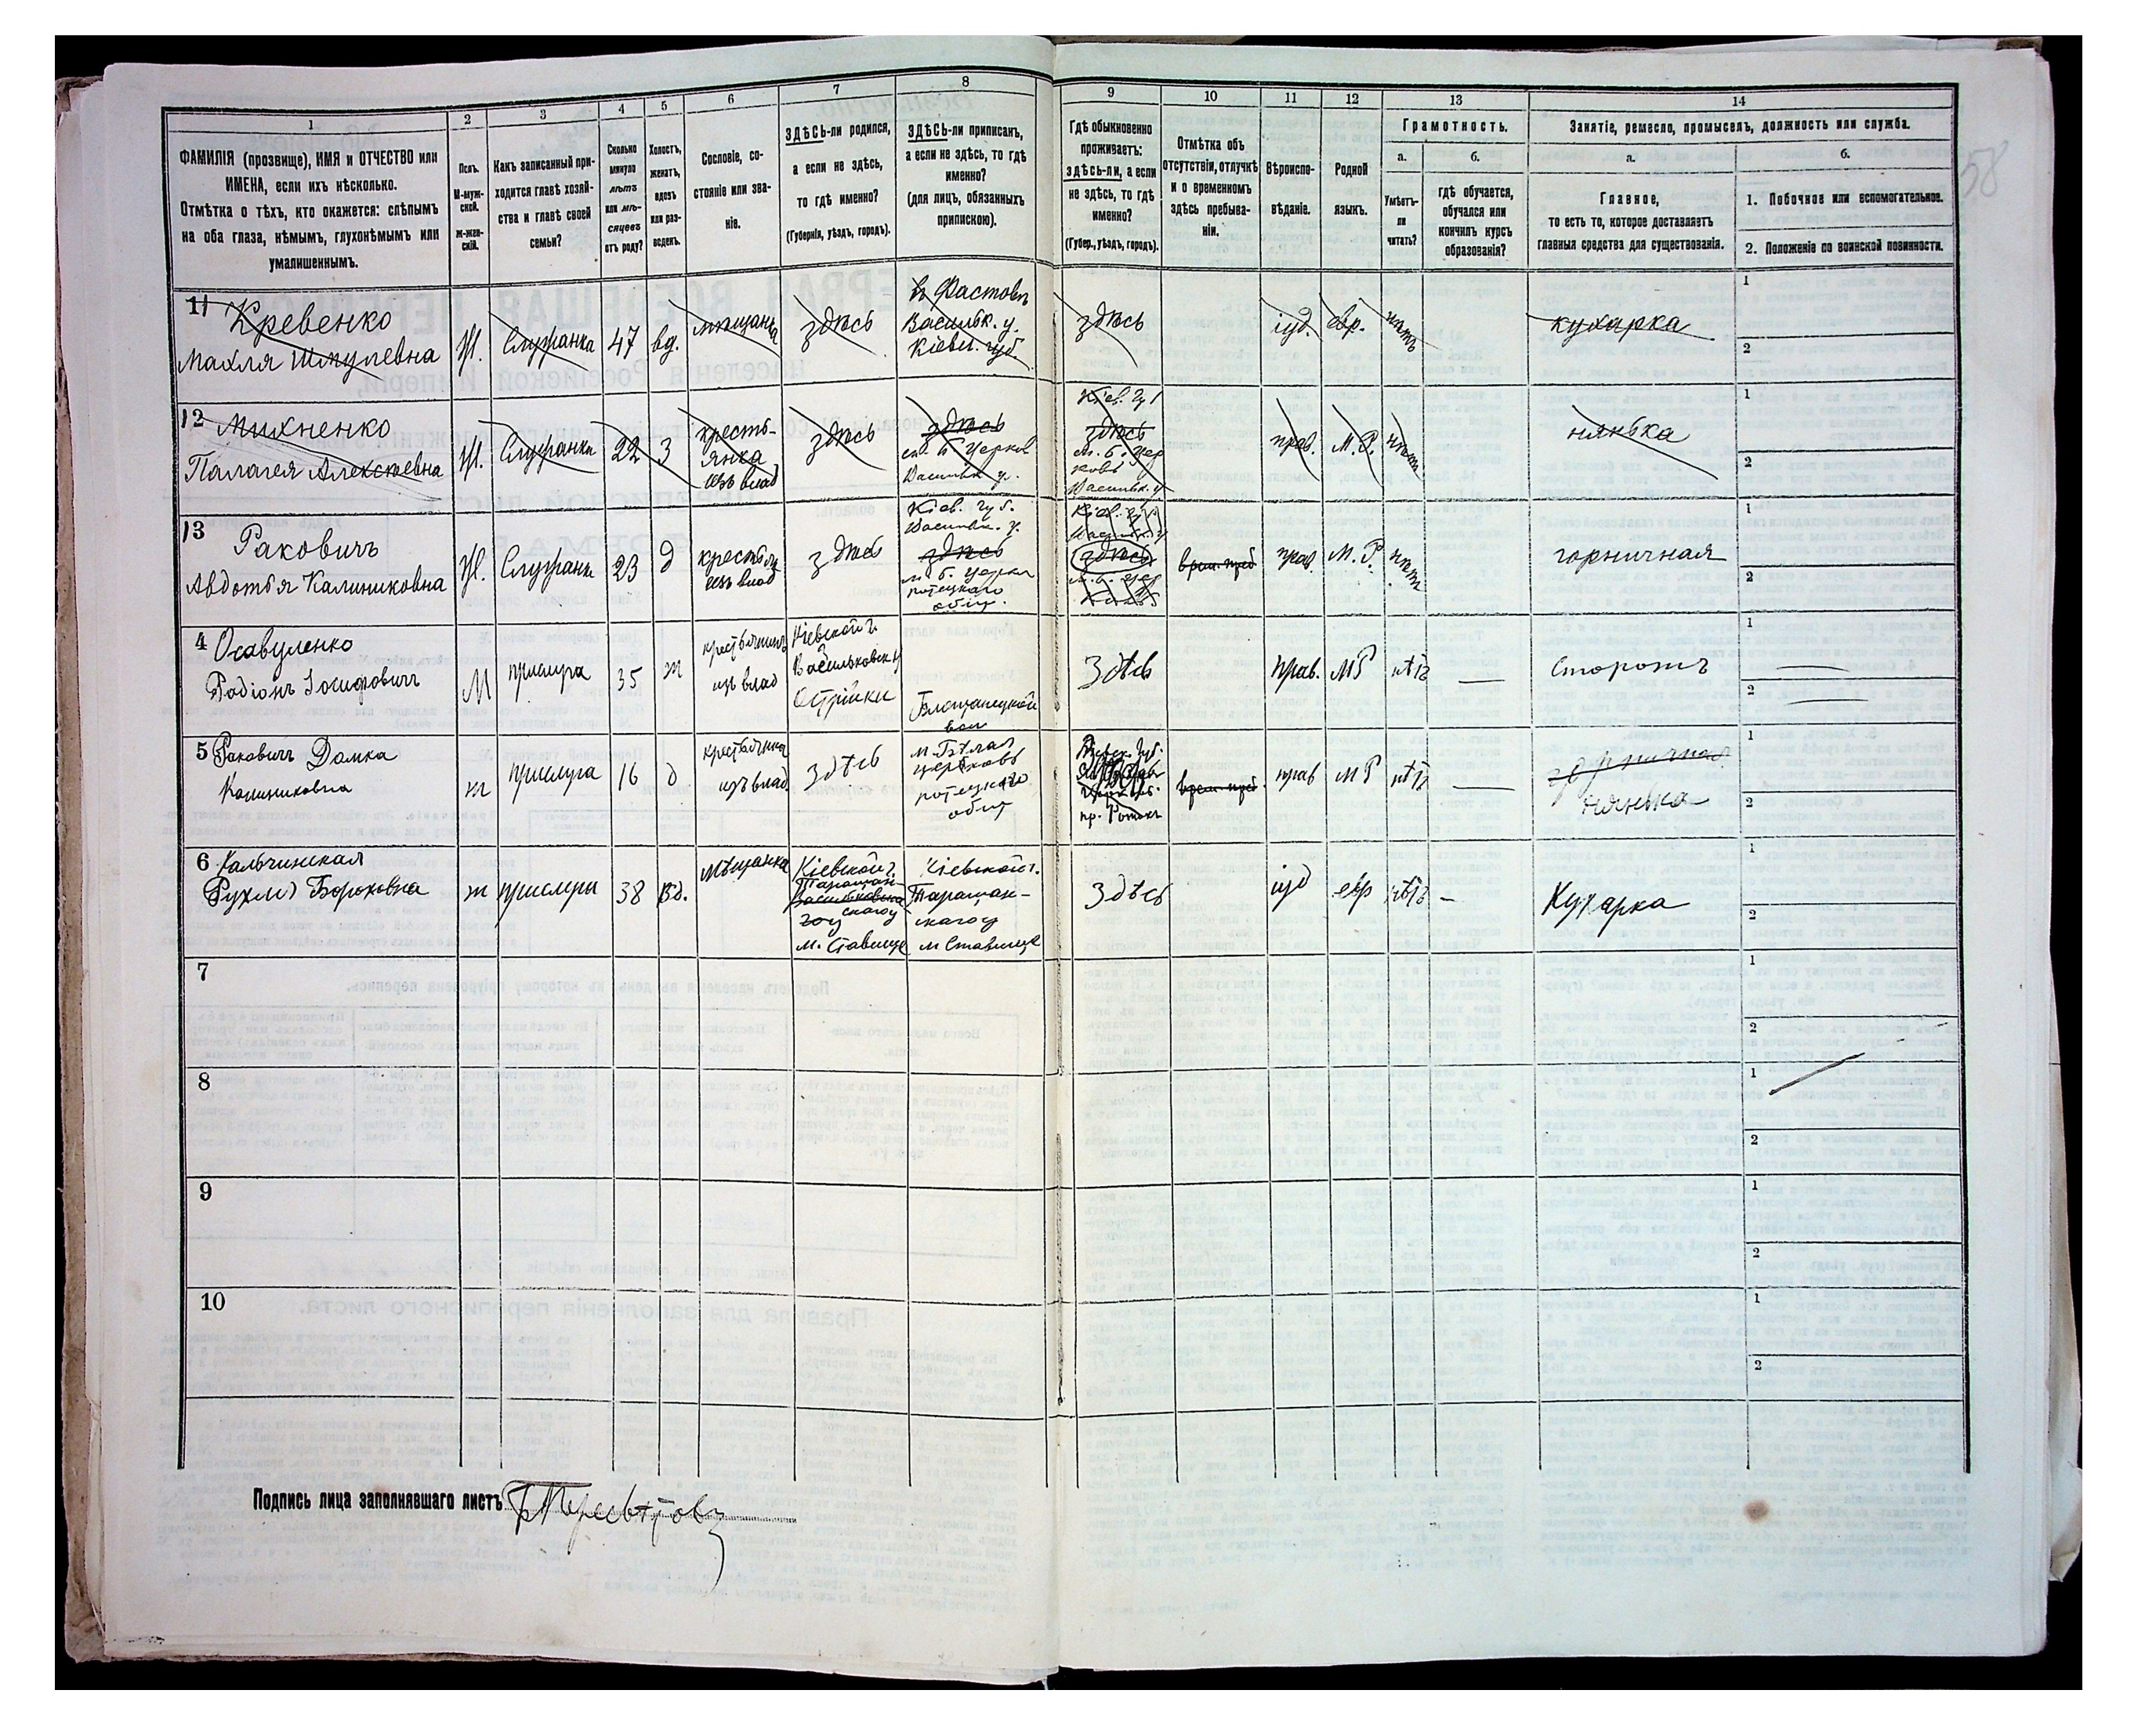 58
1
ФАМИЛІЯ (прозвище), ИМЯ и ОТЧЕСТВО или
ИМЕНА, если ихъ нѣсколько.
Отмѣтка о тѣхъ, кто окажется: слѣпымъ
на оба глаза, нѣмымъ, глухонѣмымъ или
умалишеннымъ.
2
Полъ.
М-муж-
ской.
Ж-жен-
скій.
3
Какъ записанный при-
ходится главѣ хозяй-
ства и главѣ своей
семьи?
4
Сколько
минуло
лѣтъ
или мѣ-
сяцевъ
отъ роду?
5
Холостъ,
женатъ,
вдовъ
или раз-
веденъ.
6
Сословіе, со-
стояніе или зва-
ніе.
7
ЗДѢСЬ-ли родился,
а если не здѣсь,
то гдѣ именно?
(Губернія, уѣздъ, городъ).
8
ЗДѢСЬ-ли приписанъ,
а если не здѣсь, то гдѣ
именно?
(для лицъ, обязанныхъ
припискою).
9
Гдѣ обыкновенно
проживаетъ:
здѣсь-ли, а если
не здѣсь, то гдѣ
именно?
(Губер., уѣздъ, городъ).
10
Отмѣтка объ
отсутствіи, отлучкѣ
и о временномъ
здѣсь пребыва-
ніи.
11
Вѣроиспо-
вѣданіе.
12
Родной
языкъ.
13
Грамотность.
а.
Умѣетъ-
ли
читать?
б.
гдѣ обучается,
обучался или
кончилъ курсъ
образованія?
14
Занятіе, ремесло, промыселъ, должность или служба.
а.
Главное,
то есть то, которое доставляетъ
главныя средства для существованія.
б.
1. Побочное или вспомогательное.
2. Положеніе по воинской повинности.
11
Кревенко
Махля Шмулевна
Ж.
Служанка
47
вд.
мѣщанка
здѣсь
в Фастовѣ
Васильк. у.
Кіевск. губ.
здѣсь
іуд.
евр.
нѣтъ
кухарка
1
2
12
Михненко
Палагея Алексѣевна
Ж.
Служанка
22
З
кресть-
янка
изъ влад
здѣсь
здѣсь
м. Б Церков
Васильк у.
Кіев. Гу
здѣсь
м. б. Цер
ковь
Васильк. у
прав.
М. Р.
нѣтъ
нянька
1
2
13
Раковичъ
Авдотья Калиниковна
Ж.
Служанк
23
д
крестья
изъ влад
здѣсь
Кіев. Губ.
Васильк. у.
здѣсь
м. б. Церкв
потецкаго
общ.
Кіев. гу
здѣсь
врем. преб
прав.
М. Р.
нѣтъ
горничная
1
2
4
Осавуленко
Радіонъ Іосифовичъ
М
прислуга
35
ж
крестьянинъ
изъ влад
Кіевской г.
Васильковск у
Острійки
вол
Здѣсь
Прав.
МР
нѣтъ
Сторожъ
1
2
5
Раковичъ Домка
Калиниковна
ж
прислуга
16
д
крестьянка
изъ влад
Здѣсь
м. Бѣлая
церковь
потецкаго
общ
врем. преб.
прав
МР
нѣтъ
горничная
нянька
1
2
6
Кальчинская
Рухля Бороховна
ж
прислуга
38
Вд.
Мѣщанка
Кіевской г.
Таращан-
скаго у
м. Ставище
Кіевской г.
Таращан-
скаго у
м Ставище
Здѣсь
іуд
евр
нѣтъ
Кухарка
1
2
7
1
2
8
1
2
9
1
2
10
1
2
Подпись лица заполнявшаго листъ